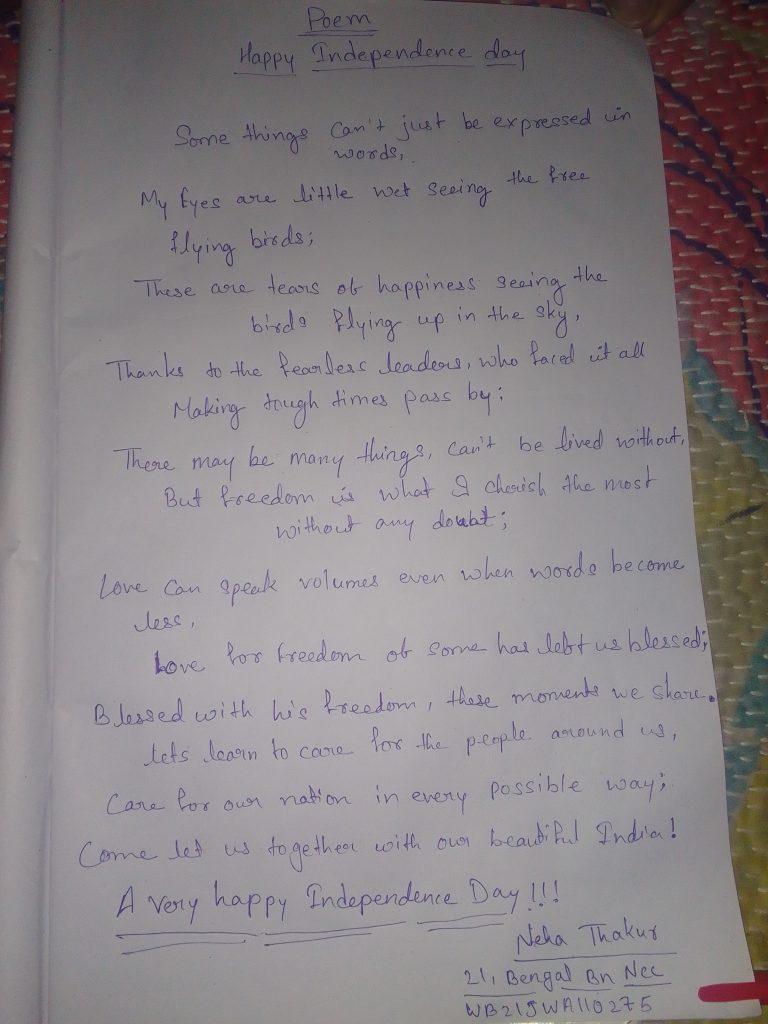 Poem
Happy Independence day
Some things can't just be expressed in
words,
My Eyes are little wet seeing the free
flying birds;
These are tears of happiness seeing the
birds flying up in the sky,
Thanks to the fearless leaders, who faced it all
Making tough times pass by;
There may be many things, can't be lived without,
But freedom is what I cherish the most
without any doubt;
Love can speak volumes even when words become
less,
Love for freedom of some has left us blessed;
Blessed with his freedom, these moments we share.
lets learn to care for the people around us,
Care for our nation in every possible way;
Come let us together with our beautiful India!
A very happy Independence Day!!!
Neha Thakur
21, Bengal Bn Ncc
WB21SWA110275